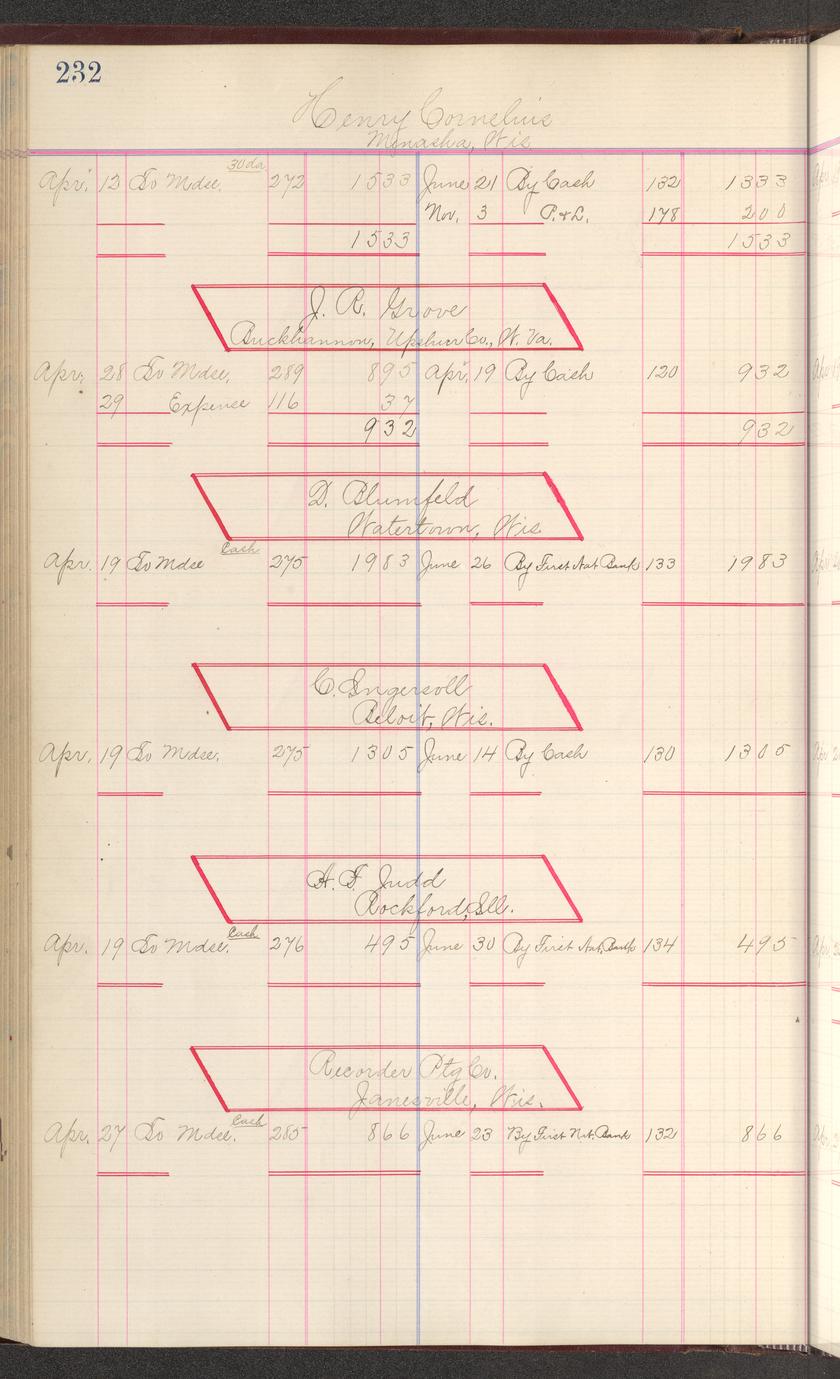 232
Henry Cornelius
Menasha, Wis
Apr. 13 To Mdse. 30 da 272 1533 June 21 By Cash 132 1333
Nov. 3 P. & L. 178 200
1533 1533
J. R. Grove
Buckhannon, Upshur Co., W. Va.
Apr. 28 To Mdse. 289 895 Apr. 19 By Cash 120 932
29 Expense 116 37
932 932
D. Blumfeld
Watertown, Wis
Apr. 19 To Mdse Cash 275 1983 June 26 By First Nat Bank 133 1983
C. Ingersoll
Beloit, Wis.
Apr. 19 To Mdse. 275 1305 June 14 By Cash 130 1305
H. F. Judd
Rockford, Ill.
Apr. 19 To Mdse. Cash 276 495 June 30 By First Nat. Bank 134 495
Recorder Ptg Co.
Janesville, Wis.
Apr. 27 To Mdse. Cash 285 866 June 23 By First Nat. Bank 132 866